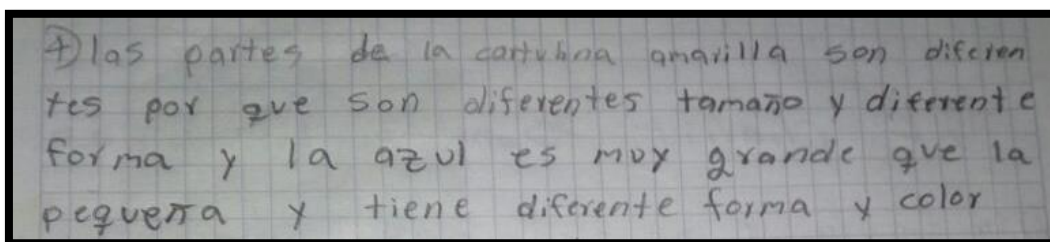 4) las partes de la cartubna amarilla son diferen
tes por que son diferentes tamaño y diferente
forma y la azul es muy grande que la
pequeña y tiene diferente forma y color